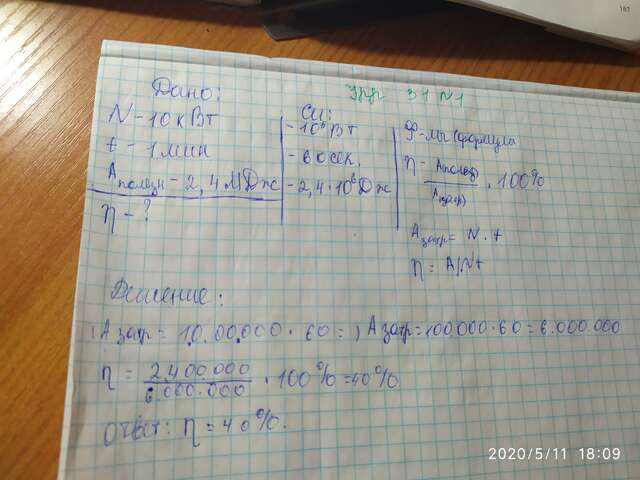 Упр 31 N1
Дано:
N - 10 кВт
t - 1 мин
Aполезн - 2,4 МДж
η - ?
Си:
- 10⁵ Вт
- 60 сек.
- 2,4·10⁶ Дж
Ф-мы (формулы
η - Aполез) / Aзатр) · 100%
Aзатр = N · t
η = A/Nt
Решение:
(Aзатр = 10.00.000 · 60 = ) Aзатр = 100.000·60 = 6.000.000
η = 2.400.000 / 6.000.000 · 100% = 40%
Ответ: η = 40%.
2020/5/11 18:09